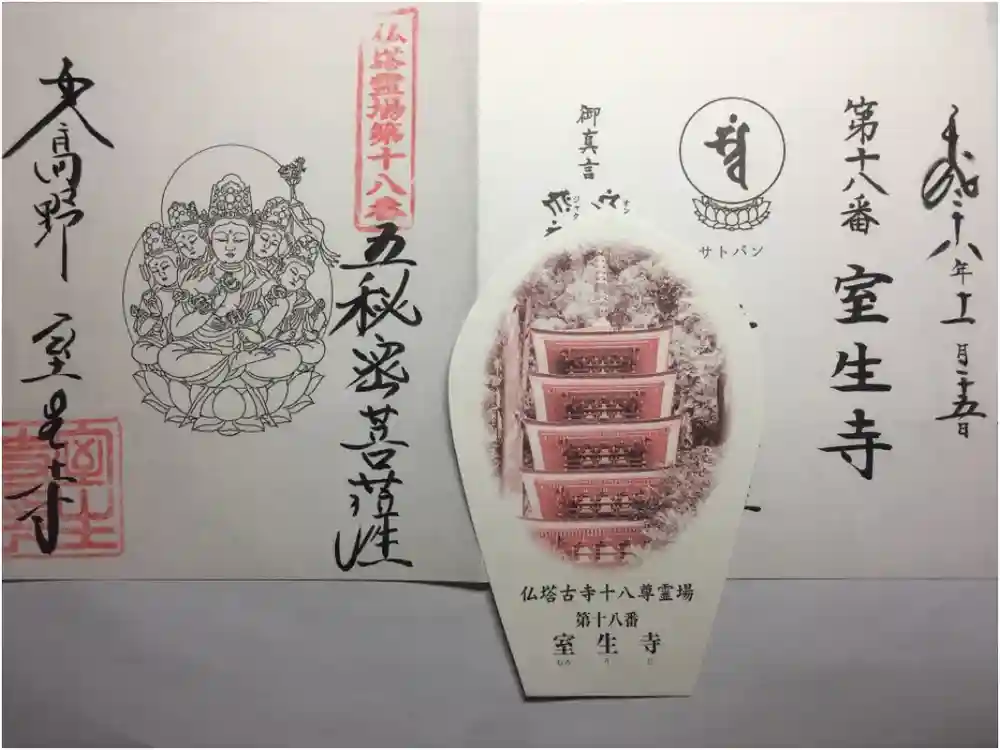 平成二十八年十一月二十五日
第十八番 室生寺
サトバン
御真言
オン
ジャク
仏塔霊場第十八番
五秘密菩薩
女人高野 室生寺
仏塔古寺十八尊霊場
第十八番
室生寺
むろうじ